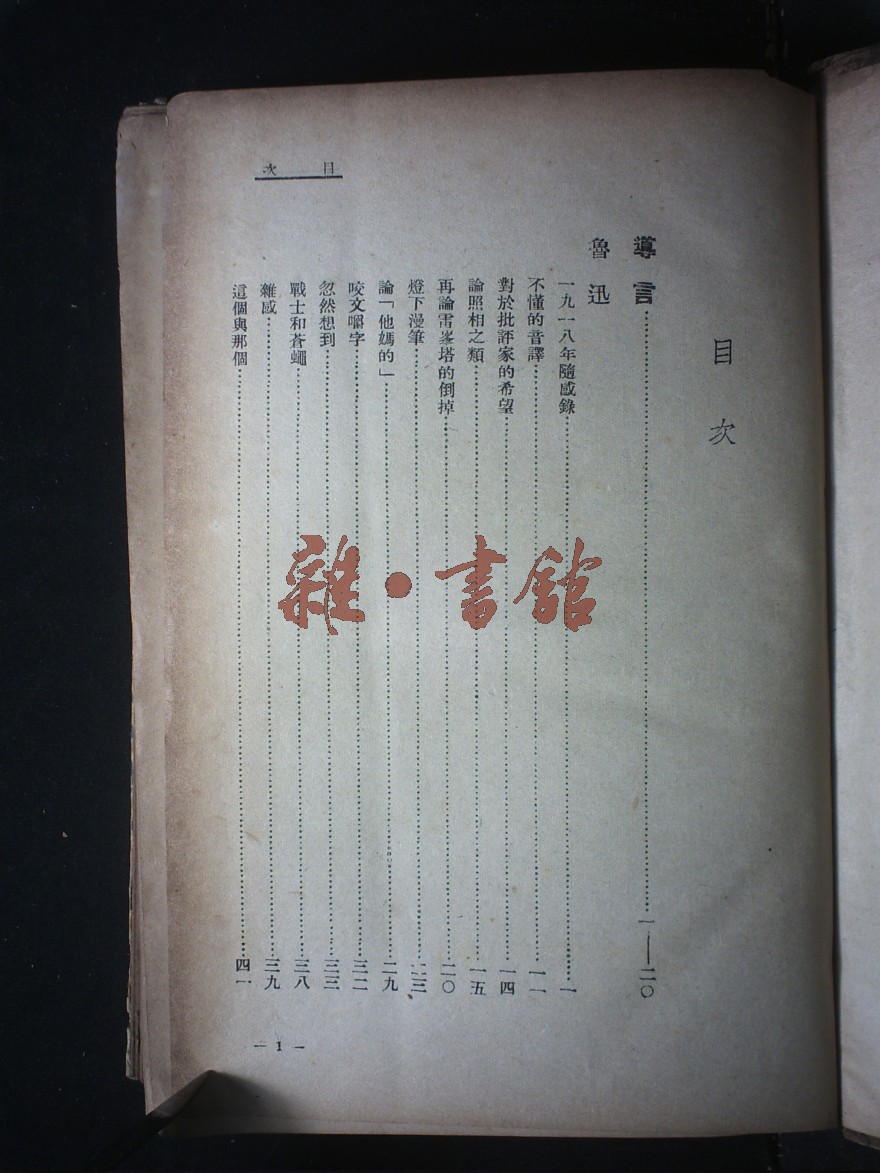 目次
目次
導言……一——二〇
魯迅
一九一八年隨感錄……一
不懂的音譯……一一
對於批評家的希望……一四
論照相之類……一五
再論雷峯塔的倒掉……二〇
燈下漫筆……二三
論「他媽的」……二九
咬文嚼字……三二
忽然想到……三三
戰士和蒼蠅……三八
雜感……三九
這個與那個……四一
— 1 —
雜·書館